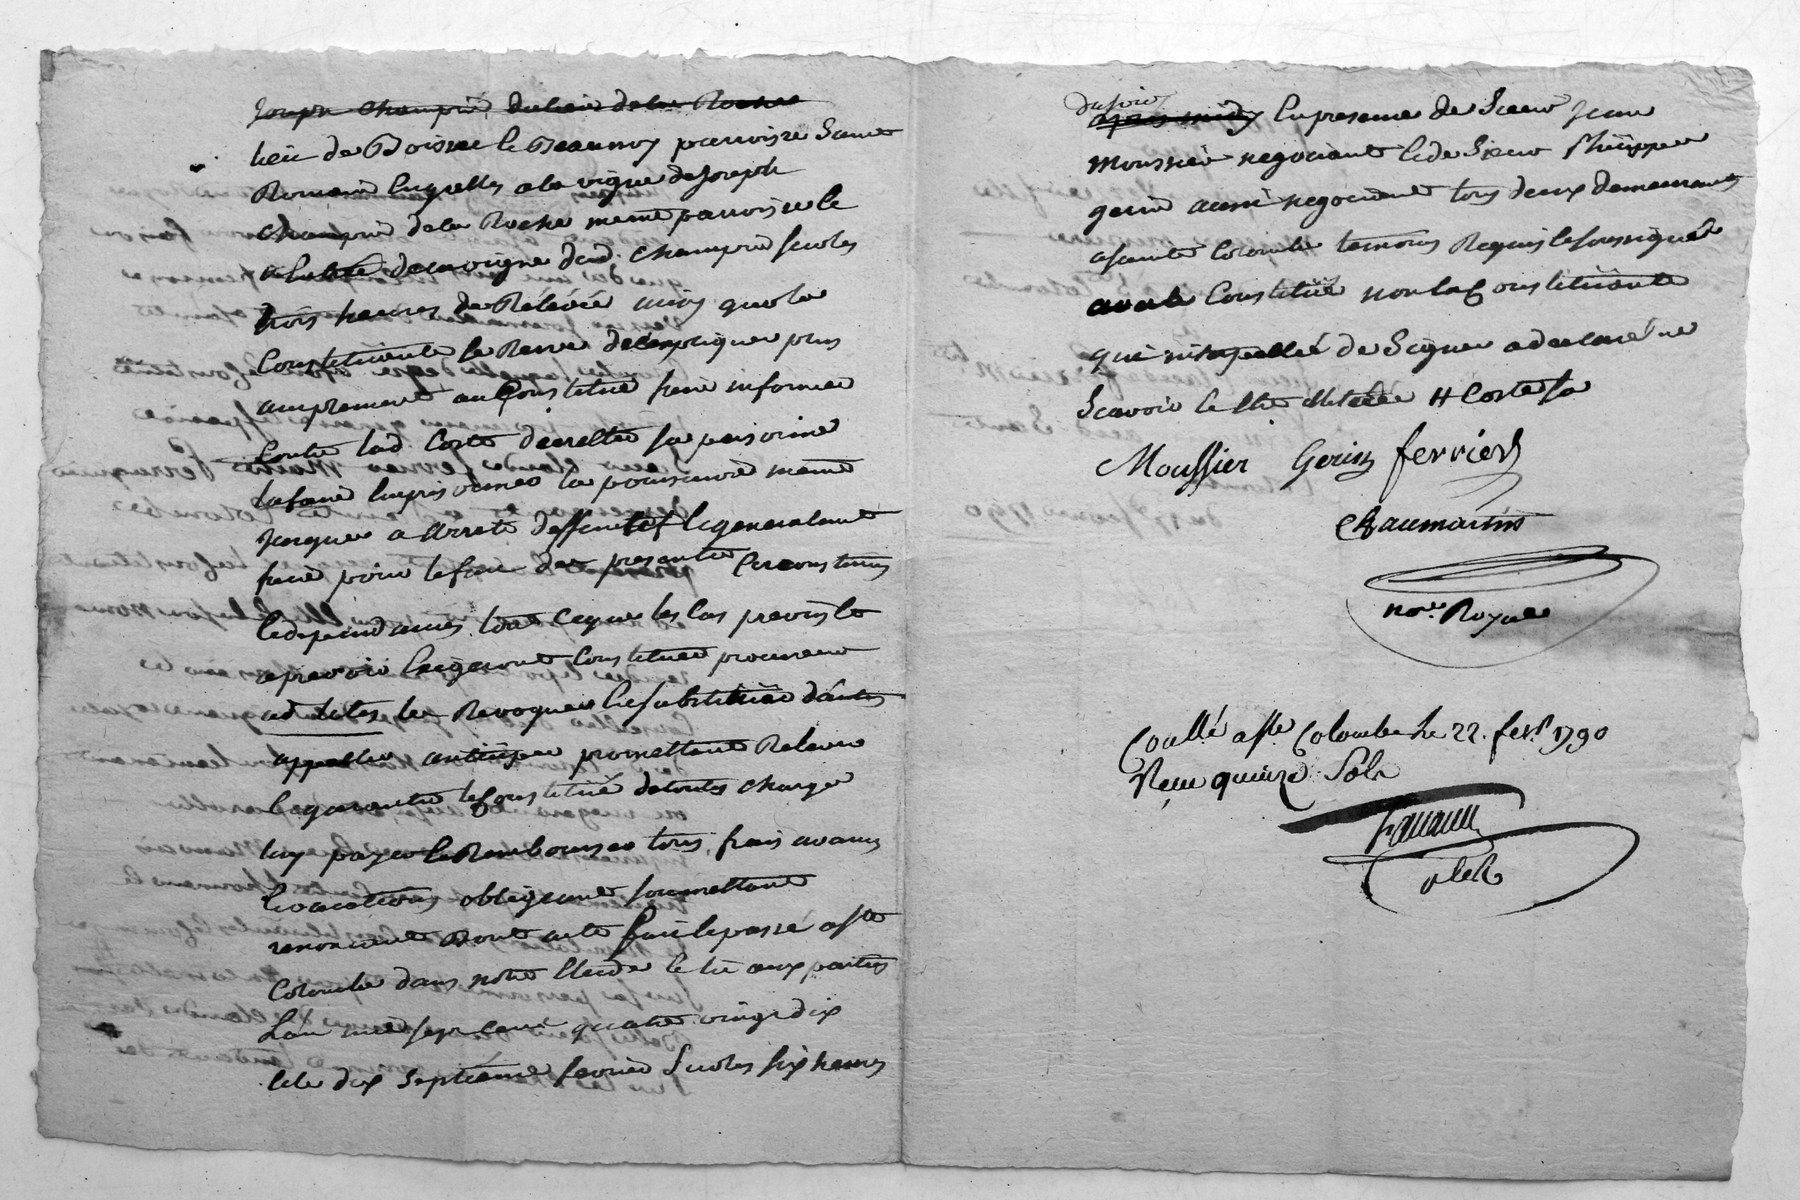 Joseph champrin du lieu de la Roche
lieu de Boisne le Beaunoy parroisse Saint
Romain a la vigne de Joseph
champrin de la Roche meme parroisse le
de sa vigne dud. champrin sur les
trois heures de Relevée ainsi que la
Constituante se Reserve de l'expliquer plus
amplement au Constitué faire informer
Contre lad. Coste decretter sa personne
la faire Emprisonner la poursuivre meme
jusques a arrets deffinitif Et generalement
faire pour le fait des presentes Circonstances
Et dependances tout ce que les cas prevus Et
a prevoir Exigeront Constituer procureur
ad lites les Revoquer En substituer d'autes
appeller anticiper promettant Relever
Et garentir le Constitué de toutes charge
luy payer Et Rembourser tous frais avances
Et vacations obligeant soumettant
renonceant Dont acte fait Et passé a Ste
Colombe dans notre Etude Et lu aux parties
L'an mil sept cent quatre vingt dix
Et le dix septiéme fevrier Sur les six heures
du soir
apres midy En presence de Sieur Jean
Moussier negociant Et de Sieur Philippe
gerin aussi negociant tous deux demeurants
a sainte Colombe temoins Requis Et soussignés
avec le Constitué non la Constituante
qui interpellée de Signer a declaré ne
Scavoir
Moussier Gerin ferrier
Chaumartin
nore. Royal
Conllé a Ste Colombe le 22. fevr. 1790
Reçu quinze Sols